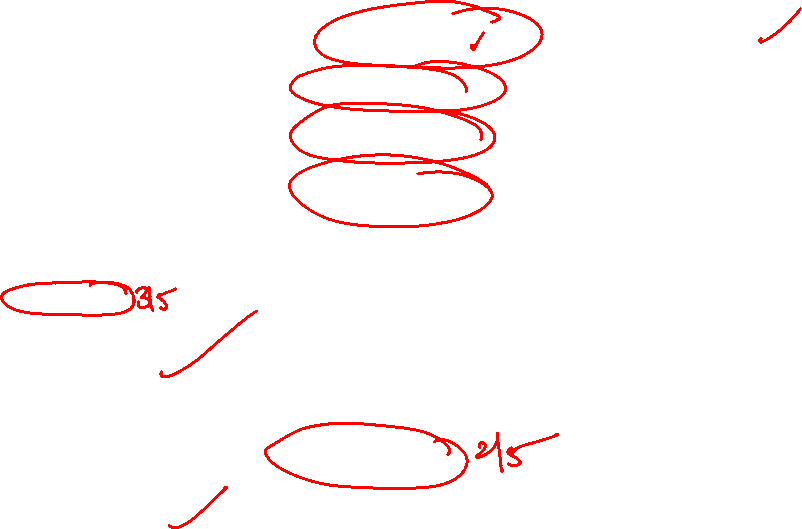 3/5
2/5